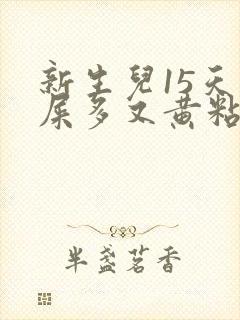 新生兒15天
屎多又黃粘
半盞茗香